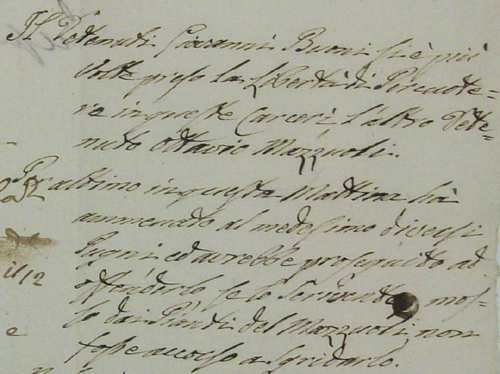 Il Detenuti Giovanni Buoni si è più
volte preso la libertà di Percuote=
re in queste Carceri, l'altro Dete=
nuto Ottavio Mazzuoli.
Per ultimo in questa Mattina ha
ammenato al medesimo diversi
Pugni ed avrebbe proseguito ad
offenderlo se lo Servente mos=
so dai Pianti del Mazzuoli non
fosse accorso a Sgridarlo.